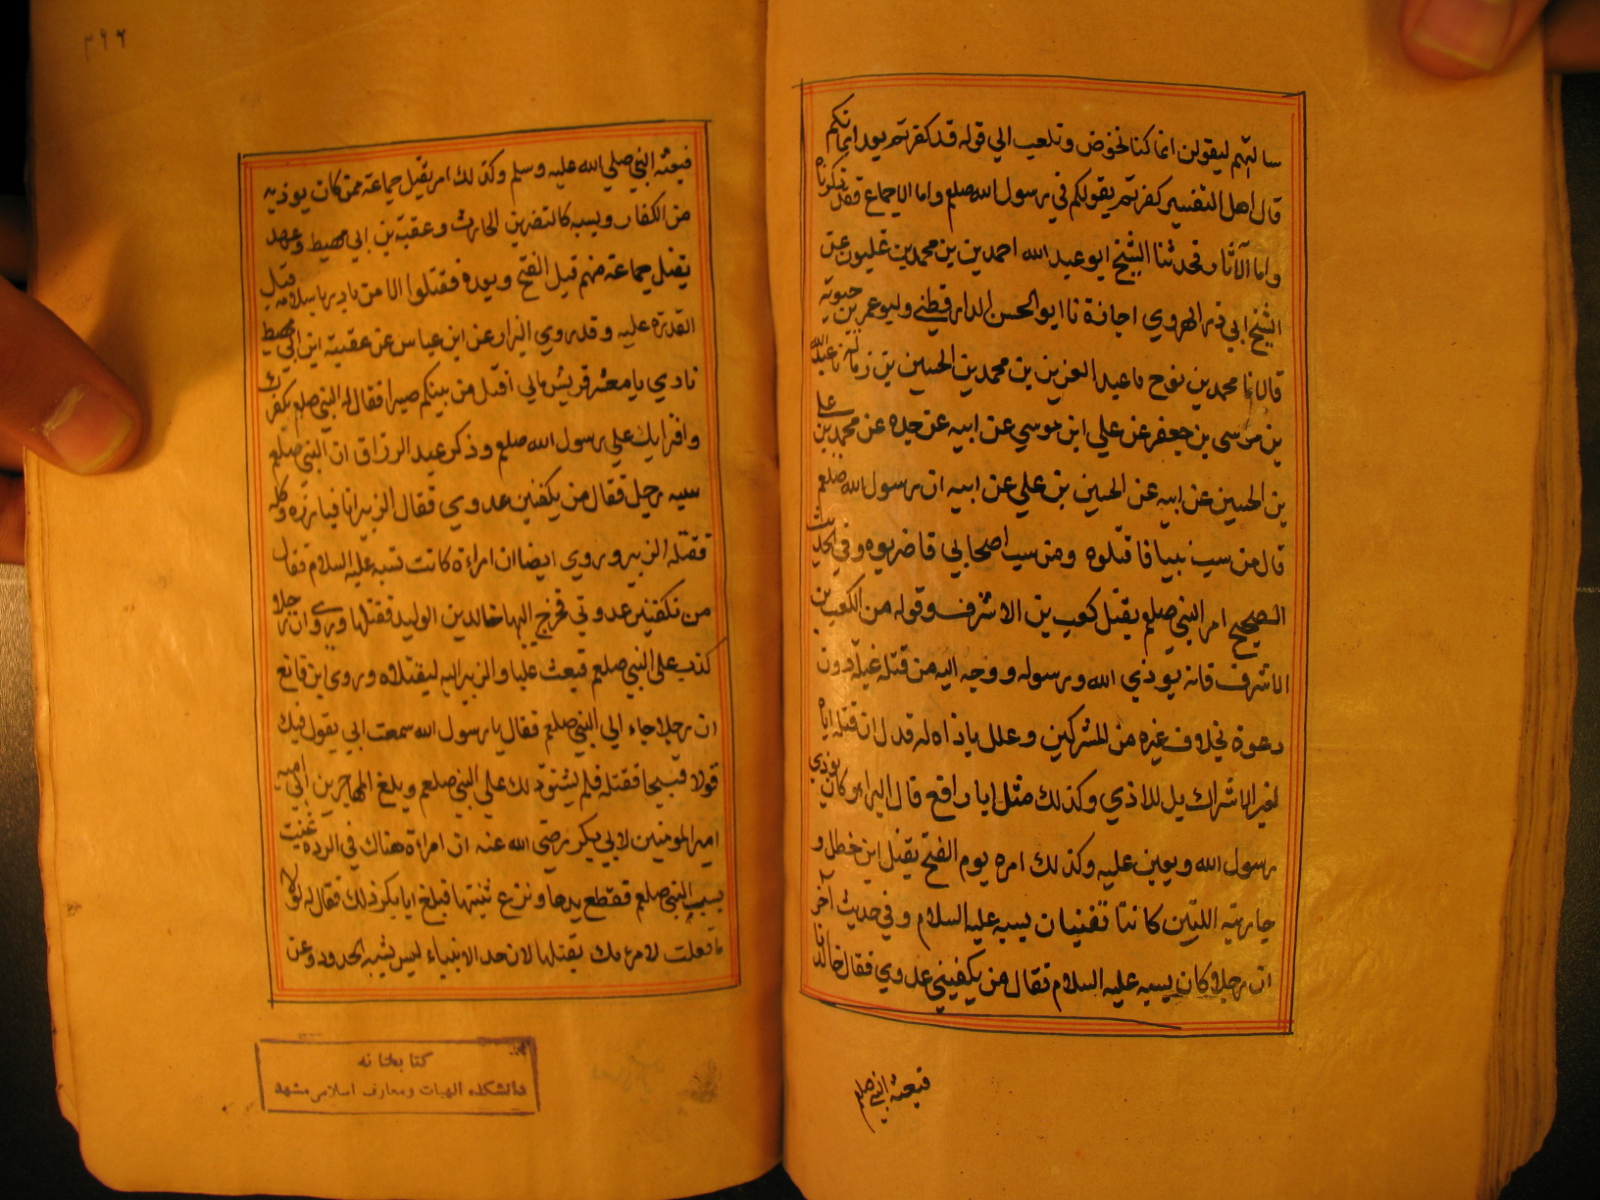 سالتهم ليقولن انما كنا نخوض ونلعب الي قوله قد كفرتم بعد ايمانكم
قال اهل التفسير كفرتم بقولكم في رسول الله صلعم واما الاجماع فقد ذكرناه
واما الآثار فحدثنا الشيخ ابو عبد الله احمد بن بن محمد بن غلبون عن
الشيخ ابي ذر الهروي اجازة نا ابو الحسن الدارقطني وابو عمر بن حيوته
قالا نا محمد بن نوح نا عبد العزيز بن محمد بن الحسين بن زبالة نا عبد الله
بن موسى بن جعفر عن علي ابن موسي عن ابيه عن جده عن محمد بن علي
بن الحسين عن ابيه عن الحسين بن علي عن ابيه ان رسول الله صلعم
قال من سب نبيا فاقتلوه ومن سب اصحابي فاضربوه وفي الحديث
الصحيح امر النبي صلعم بقتل كعب بن الاشرف وقوله من الكعب بن
الاشرف فانه يوذي الله ورسوله ووجه اليه من قتله غيلة دون
دعوة بخلاف غيره من المشركين وعلل باذاه له فدل ان قتله اياه
لغير الاشراك بل للاذي وكذلك مثل ابا رافع قال البراء وكان يوذي
رسول الله ويعين عليه وكذلك امره يوم الفتح بقتل ابن خطل و
جاريتيه اللتين كانتا تغنيان بسبه عليه السلام وفي حديث آخر
ان رجلا كان يسبه عليه السلام فقال من يكفيني عدوي فقال خالد انا
فبعثه النبي صلعم
٣٩٦
فبعثه النبي صلي الله عليه وسلم وكذلك امر بقتل جماعة ممن كان يوذيه
من الكفار ويسبه كالنضر بن الحارث وعقبة بن ابي معيط وعهد
بقتل جماعة منهم قبل الفتح وبعده فقتلوا الا من بادر باسلامه قبل
القدرة عليه وقد روي البزار عن ابن عباس عن عقبة ابن ابي معيط
نادي يا معشر قريش مالي اقتل من بينكم صبرا فقال له النبي صلعم بكفرك
وافترايك علي رسول الله صلعم وذكر عبد الرزاق ان النبي صلعم
سبه رجل فقال من يكفيني عدوي فقال الزبير انا فبارزه وكله
فقتله الزبير وروي ايضا ان امراءة كانت تسبه عليه السلام فقال
من يكفيني عدوتي فخرج اليها خالد بن الوليد فقتلها وروي ان رجلا
كذب علي النبي صلعم فبعث عليا والزبير اليه ليقتلاه وروي ابن قانع
ان رجلا جاء الي النبي صلعم فقال يا رسول الله سمعت ابي يقول فيك
قولا قبيحا فقتلته فلم يشق ذلك علي النبي صلعم وبلغ المهاجر بن ابي اميه
امير المومنين لابي بكر رضي الله عنه ان امراءة هناك في الردة غنت
بسب النبي صلعم فقطع يدها ونزع ثنيتها فبلغ ابا بكر ذلك فقال له لولا
ما فعلت لامرتك بقتلها لان حد الانبياء ليس يشبه الحدود وعن
كتابخانه
دانشكده الهيات ومعارف اسلامى مشهد